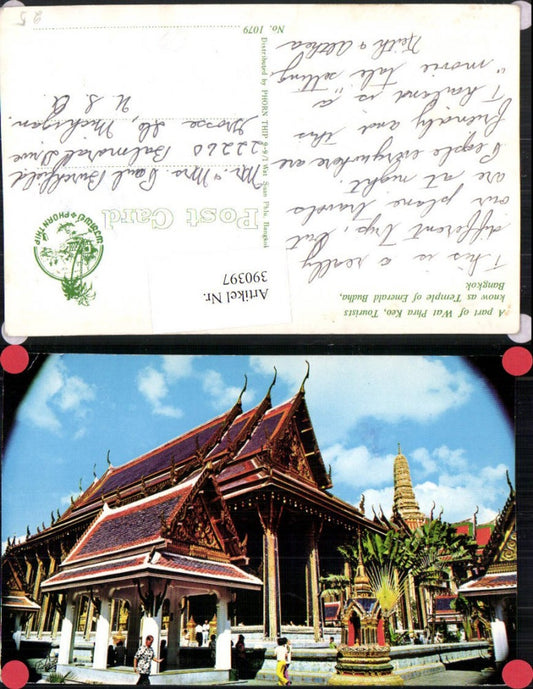 A part of Wat Phra Keo, Tourists
know as Temple of Emerald Budha,
Bangkok
This is a really
different trip, but
our plane travels
are at night.
People everywhere are
friendly and this
Thailand is a
"movie tale" setting
Keith & Althea
No. 1079
Distributed by PHORN THIP
Bangkok
Post Card
PHORN THIP
Artikel Nr.
390397
Mr. & Mrs Paul Burchfield
22260 Balmoral Drive
Grosse Ile, Michigan.
U. S. A.
25